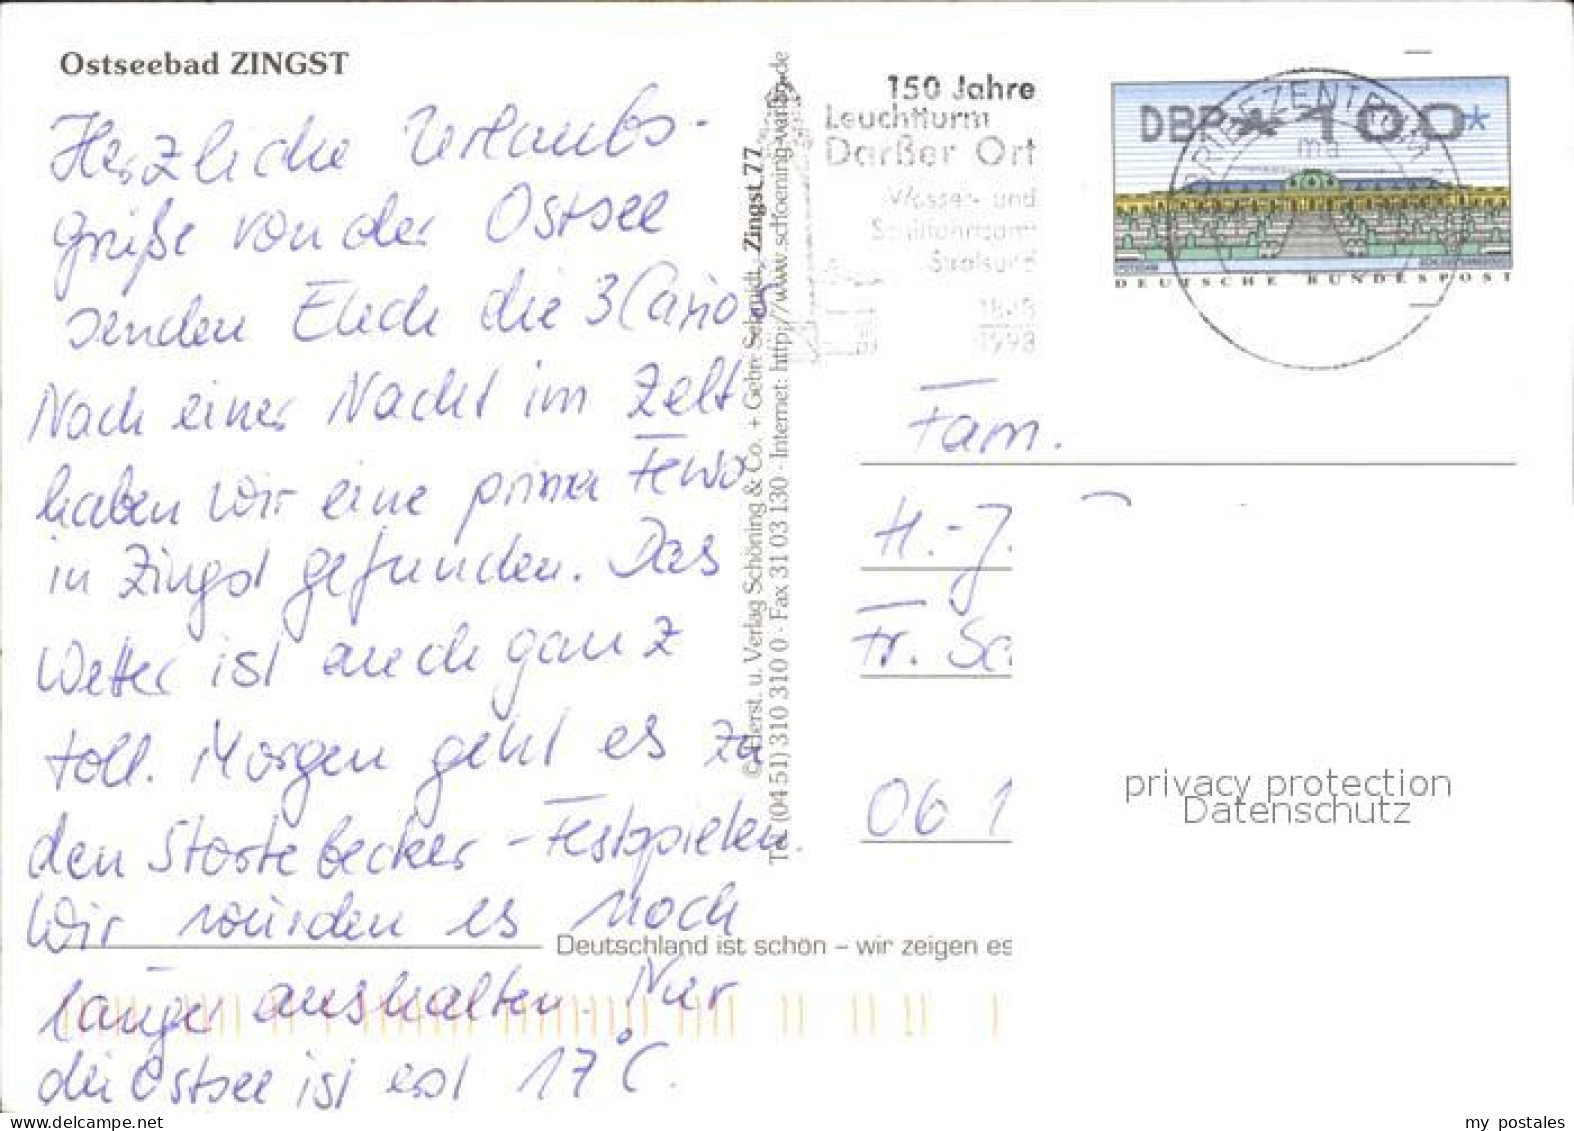 Ostseebad ZINGST
Herzliche Urlaubs-
grüße von der Ostsee
senden Euch die 3
Nach einer Nacht im Zelt
haben wir eine prima Fewo
in Zingst gefunden. Das
Wetter ist auch ganz
toll. Morgen geht es zu
den Störtebecker-Festspielen.
Wir würden es noch
länger aushalten. Nur
die Ostsee ist erst 17°C.
© Herst. u. Verlag Schöning & Co. + Gebr. Schmidt, Zingst 77
Tel. (04 51) 310 310 0 · Fax 31 03 130 · Internet: http://www.schoening-verlag.de
150 Jahre
Leuchtturm
Darßer Ort
Wasser- und
Schiffahrtsamt
Stralsund
1848
1998
DBP * 100*
BRIEFZENTRUM
ma
DEUTSCHE BUNDESPOST
Fam.
H.-J.
Fr. Sc
06 1
Deutschland ist schön – wir zeigen es
privacy protection
Datenschutz
my postales